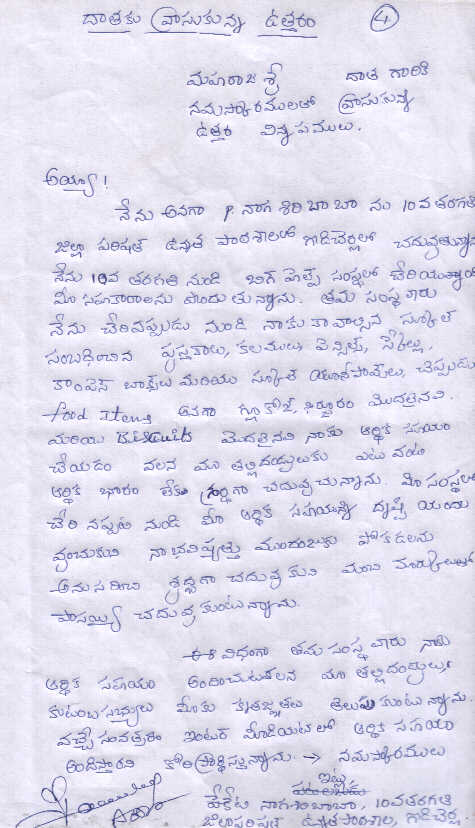 దాతకు వ్రాసుకున్న ఉత్తరం 4
మహరాజశ్రీ దాత గారికి
నమస్కారములతో వ్రాసుకున్న
ఉత్తర విన్నపములు.
అయ్యా!
నేను అనగా P. నాగ శిరి బాబా నం 10వ తరగతి
జిల్లా పరిషత్ ఉన్నత పాఠశాలలో గాడిచెర్లలో చదువుతున్నాను
నేను 10వ తరగతి నుండి బిగ్ హెల్ప్ సంస్థలో చేరియున్నాను
మీ సహకారాలను పొందుతున్నాను. తమ సంస్థ వారు
నేను చేరినప్పుడు నుండి నాకు కావాల్సిన స్కూల్
సంబధించిన పుస్తకాలు, కలములు, పెన్సిల్స్, స్కేల్లు,
కాంపెస్ బాక్స్‌లు మరియు స్కూల్ యూనిఫామ్‌లు, చెప్పుడు
food Items అనగా గ్లూకోజ్, మొదలైనవి.
మరియు Biscuits మొదలైనవి నాకు ఆర్థిక సహాయం
చేయడం వలన మా తల్లిదండ్రులకు ఎటువంటి
ఆర్థిక భారం లేకుండా చదువుచున్నాను. మీ సంస్థలో
చేరినప్పటి నుండి మీ ఆర్థిక సహాయన్ని దృష్టి యందు
వుంచుకుని నా భవిష్యత్తు ముందుజుకు పోకడలను
అనుసరించి శ్రద్ధగా చదువుకుని మంచి మార్కులుతో
పాసయ్యి చదువుకుంటున్నాను.
ఈ విధంగా తమ సంస్థ వారు నాకు
ఆర్థిక సహయం అందించుటవలన మా తల్లిదండ్రులు,
కుటుంబసభ్యులు మీకు కృతజ్ఞతలు తెలుపుకుంటున్నాను.
వచ్చే సంవత్సరం ఇంటర్ మీడియట్‌లో ఆర్థిక సహయం
అందిస్తారని కోరి ప్రార్థిస్తున్నాను. → నమస్కారములు
ఇట్లు
పేకేటి నాగశిరిబాబా, 10వతరగతి
జిల్లాపరిషత్ ఉన్నత పాఠశాల, గాడిచెర్ల